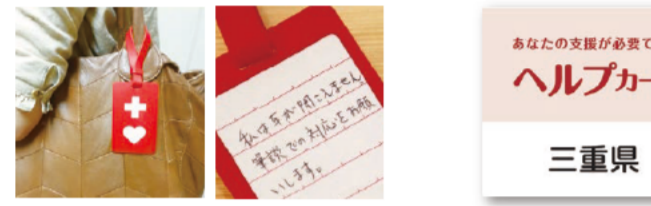 私は耳が聞こえません
筆談での対応をお願
いします。
あなたの支援が必要で
ヘルプカー
三重県